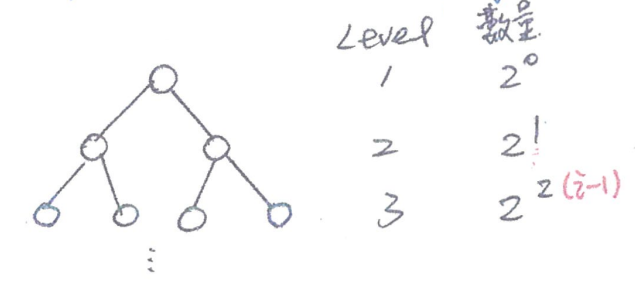 Level 数量
1 2^0
2 2^1
3 2^2 (i-1)
⋮